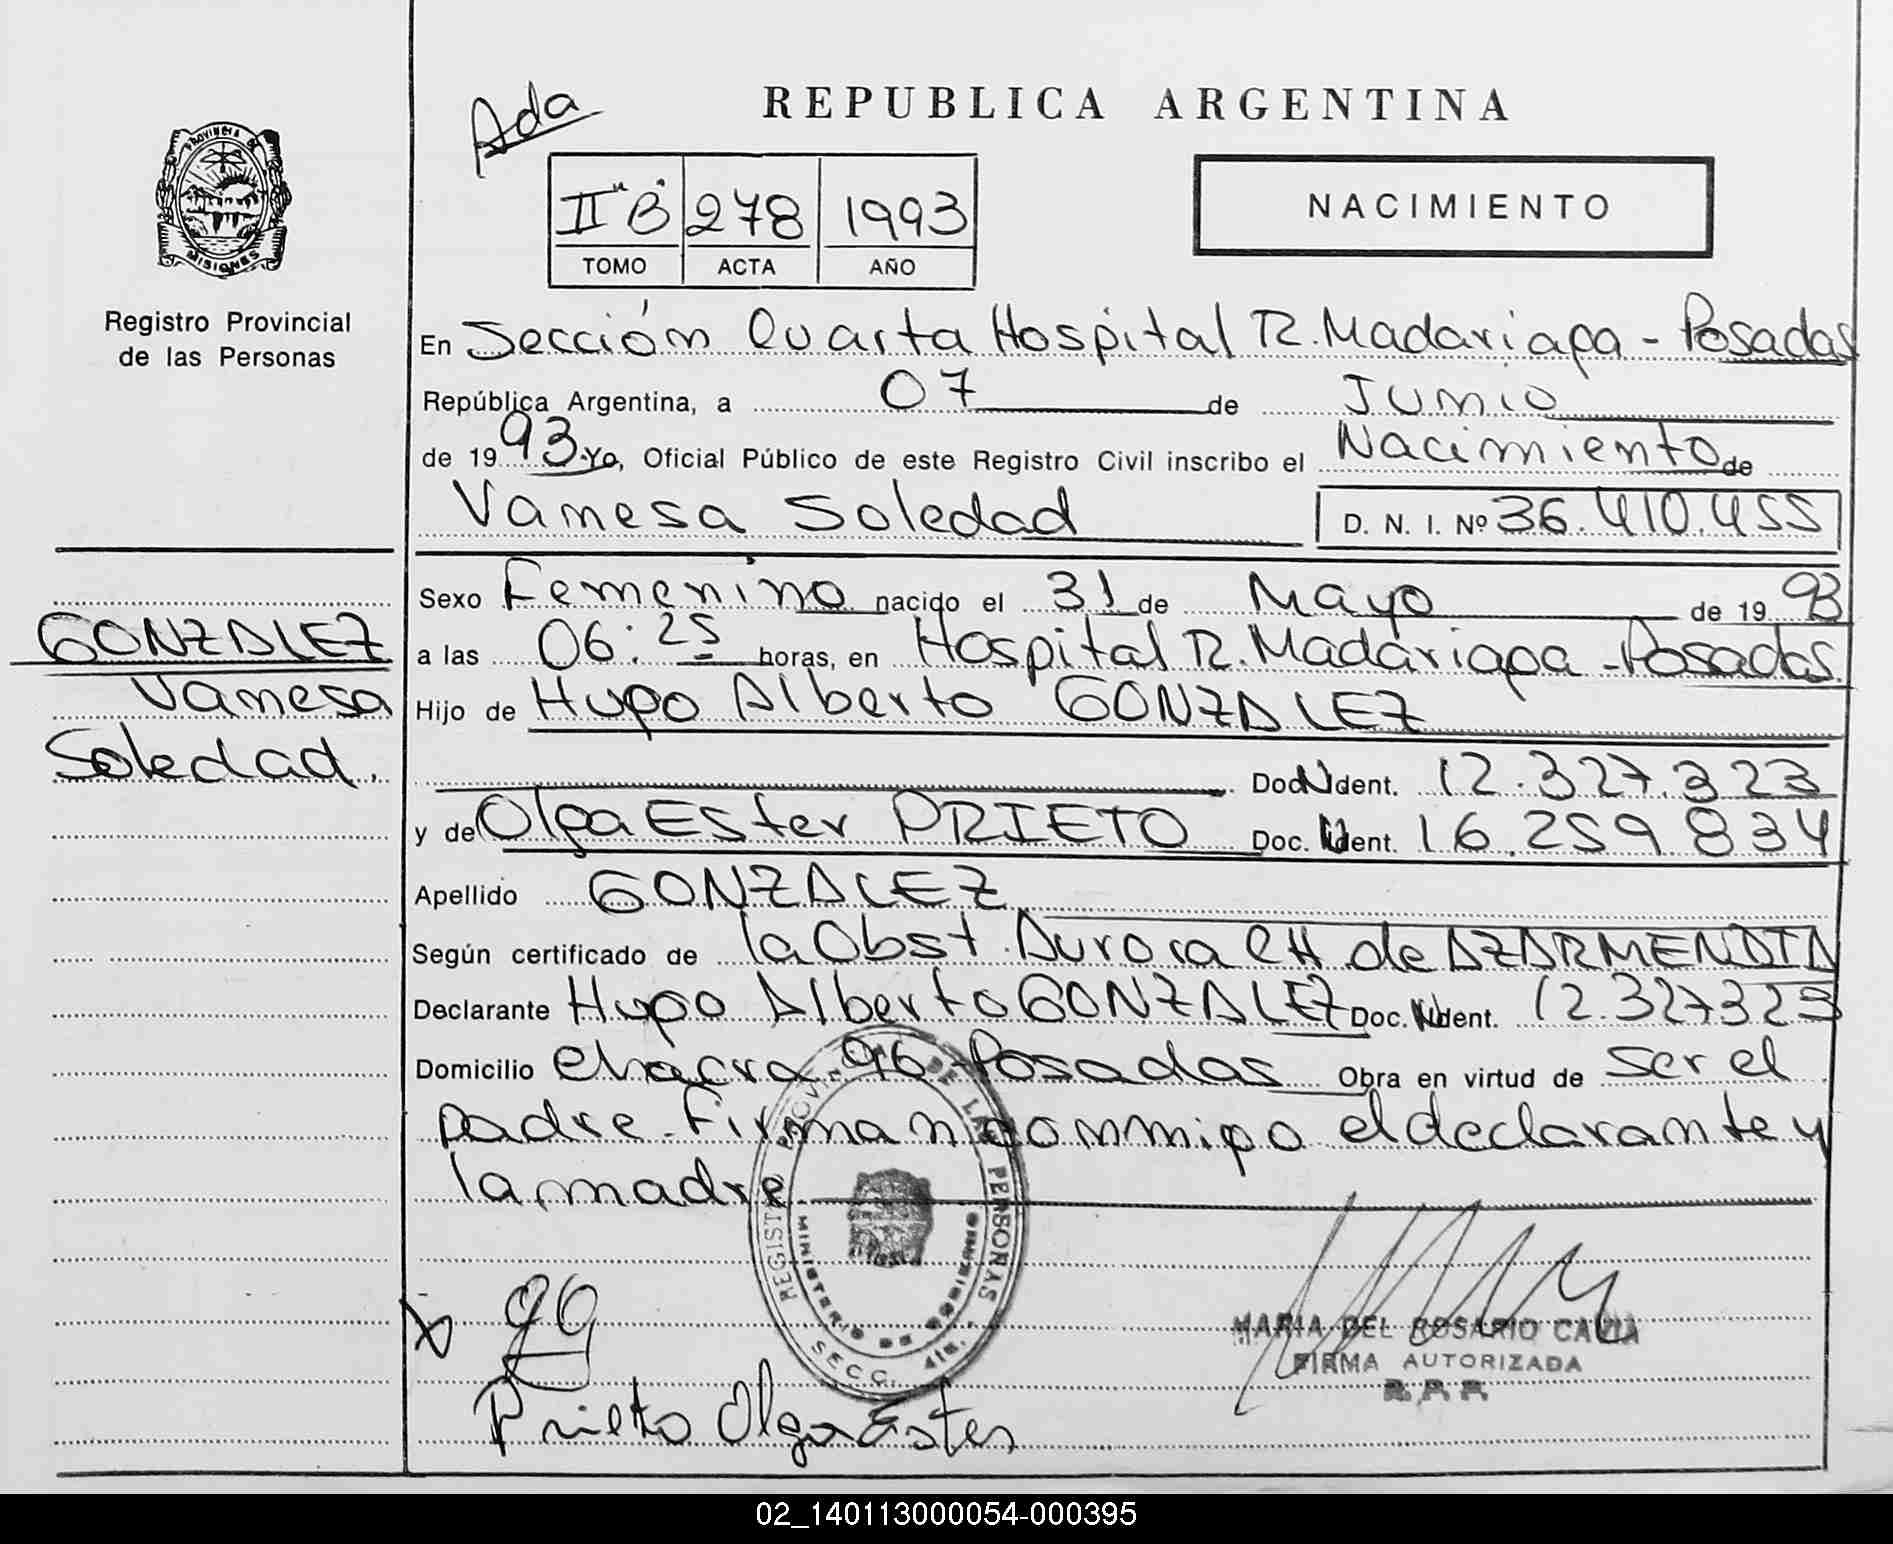 Ada
REPUBLICA ARGENTINA
PROVINCIA DE
MISIONES
II "B" 278 1993
TOMO ACTA AÑO
NACIMIENTO
Registro Provincial
de las Personas
En Sección Cuarta Hospital R. Madariaga - Posadas
República Argentina, a 07 de Junio
de 1993. Yo, Oficial Público de este Registro Civil inscribo el Nacimiento de
Vanesa Soledad D. N. I. Nº 36.410.455
Sexo Femenino nacido el 31 de Mayo de 1993
GONZALEZ
Vanesa
Soledad.
a las 06:25 horas, en Hospital R. Madariaga - Posadas.
Hijo de Hugo Alberto GONZALEZ
Doc. Ident. 12.327.323
y de Olga Ester PRIETO Doc. Ident. 16.259.834
Apellido GONZALEZ
Según certificado de la Obst. Aurora CH de AZARMENDIA
Declarante Hugo Alberto GONZALEZ Doc. Ident. 12.327323
Domicilio Chacra 96 - Posadas Obra en virtud de ser el
padre. Firman conmigo el declarante y
la madre
REGISTRO PROVINCIAL DE LAS PERSONAS
MINISTERIO DE GOBIERNO
SECC. 4ta.
Prieto Olga Ester
MARIA DEL ROSARIO
FIRMA AUTORIZADA
02_140113000054-000395